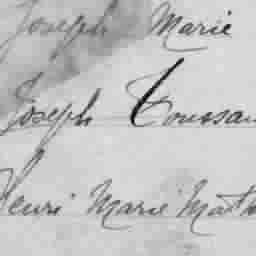 Joseph Marie
Joseph Toussain
Henri Marie Math